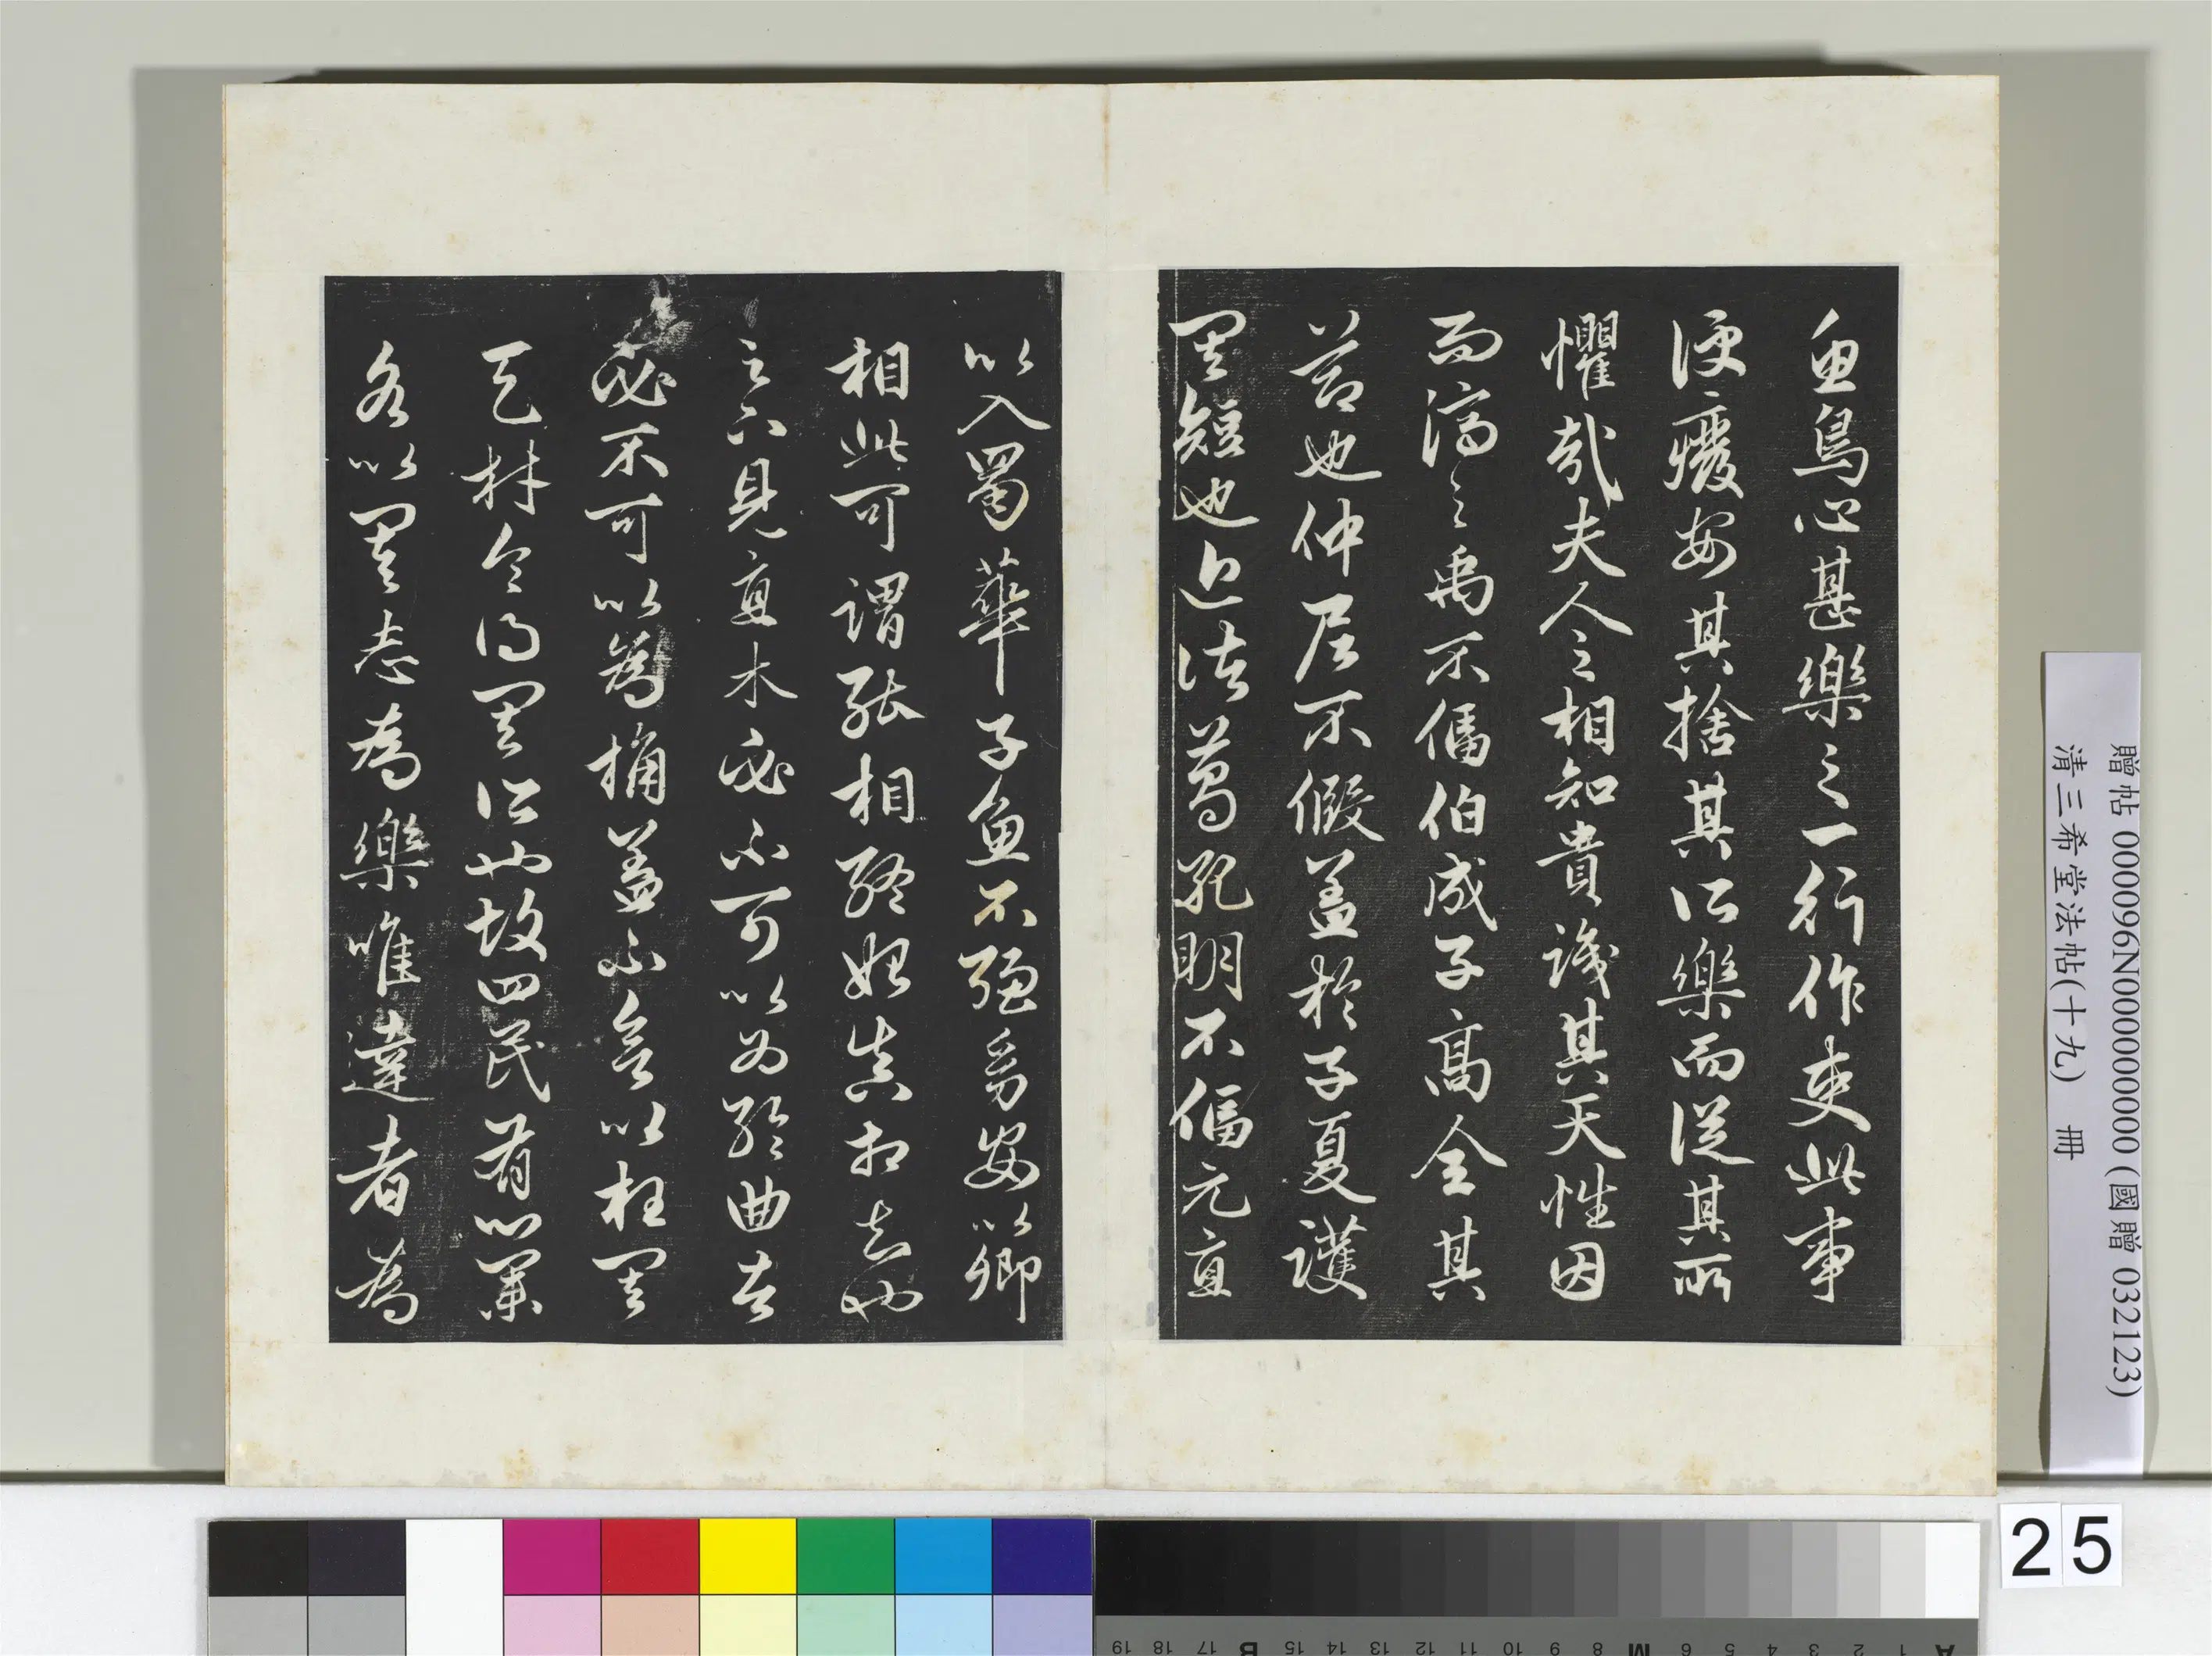 魚鳥心甚樂之一行作吏此事
便廢安其捨其所樂而從其所
懼哉夫人之相知貴識其天性因
而濟之禹不偪伯成子高全其
節也仲尼不假蓋於子夏護
其短也近諸葛孔明不偪元直
以入蜀華子魚不強幼安以卿
相此可謂能相終始真相知也
足下見直木必不可以為輪曲者
必不可以為桷蓋不欲以枉其
天材令得其所也故四民有業
各以其志為樂唯達者為
贈帖 000096N000000000 (國贈 032123)
清三希堂法帖(十九) 冊
25
A 1 2 3 4 5 6 M 8 9 10 11 12 13 14 15 B 17 18 19